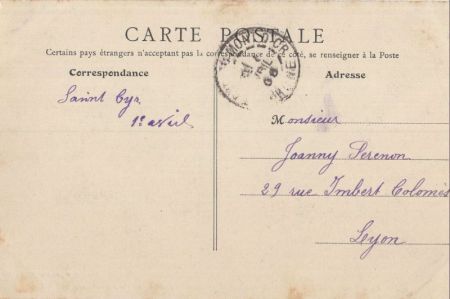 CARTE POSTALE
Certains pays étrangers n'acceptant pas la correspondance de ce côté, se renseigner à la Poste
Correspondance
Adresse
Saint Cyr
1er avril
Monsieur
Joanny Perenon
29 rue Imbert Colomès
Lyon